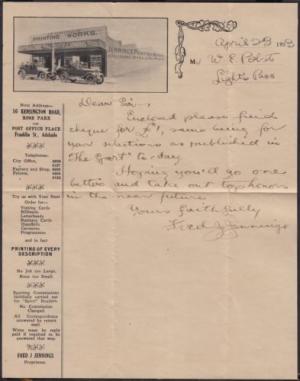 PRINTING WORKS.
April 23
Mr W. E. Pobst
Light's Pass
Dear Sir,
Enclosed please find
cheque for £1, same being for
your selections as published in
"The Sport" to-day.
Hoping you'll go one
better and take out top honors
in the near future.
Yours faithfully
Fred J. Jennings
16 KENSINGTON ROAD,
ROSE PARK
POST OFFICE PLACE
Franklin St., Adelaide
Telephones:
City Office,
Factory and Shop
Private,
Ring us with Your Next
Order for:—
Visiting Cards
Billheads
Letterheads
Business Cards
Handbills
Circulars
Programmes
and in fact
PRINTING OF EVERY
DESCRIPTION
No Job too Large.
None too Small
Sporting Commissions
faithfully carried out
for "Sport" Readers
No Commission
Charged.
All Correspondence
answered by return
mail.
Wires must be reply
paid if required to be
answered that way.
FRED J JENNINGS
Proprietor.